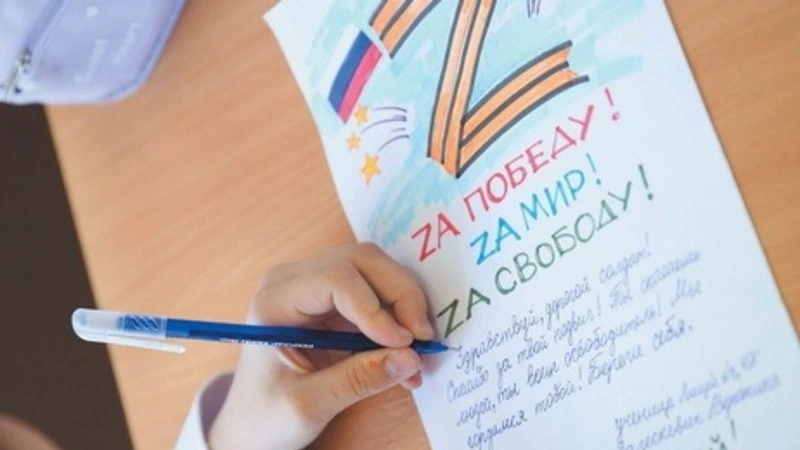 Z
ZА ПОБЕДУ!
ZА МИР!
ZА СВОБОДУ!
Здравствуй, дорогой солдат!
Спасибо за твой подвиг! Ты спасаешь
людей, ты воин освободитель! Мы
гордимся тобой! Береги себя.
ученица Лицей №